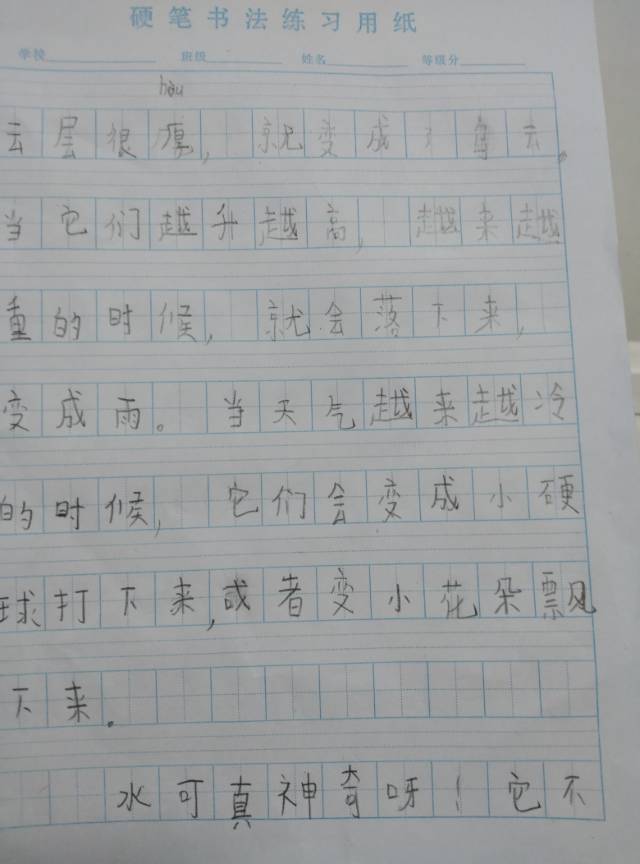 硬笔书法练习用纸
学校 班级 姓名 等级分
hòu
云层很厚，就变成了乌云。
当它们越升越高，越来越
重的时候，就会落下来，
变成雨。当天气越来越冷
的时候，它们会变成小硬
球打下来，或者变小花朵飘
下来。
水可真神奇呀！它不